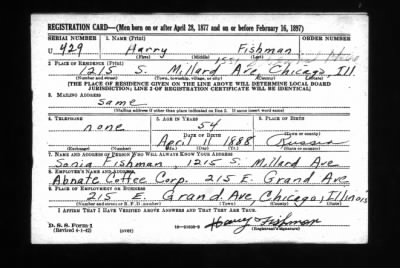 REGISTRATION CARD—(Men born on or after April 28, 1877 and on or before February 16, 1897)
SERIAL NUMBER 1. NAME (Print) ORDER NUMBER
U 429 Harry Fishman
(First) (Middle) (Last)
2. PLACE OF RESIDENCE (Print)
1215 S. Millard Ave, Chicago, Ill.
(Number and street) (Town, township, village, or city) (County) (State)
[THE PLACE OF RESIDENCE GIVEN ON THE LINE ABOVE WILL DETERMINE LOCAL BOARD
JURISDICTION; LINE 2 OF REGISTRATION CERTIFICATE WILL BE IDENTICAL]
3. MAILING ADDRESS
same
[Mailing address if other than place indicated on line 2. If same insert word same]
4. TELEPHONE 5. AGE IN YEARS 6. PLACE OF BIRTH
none 54
DATE OF BIRTH (Town or county)
April 1 1888 Russia
(Exchange) (Number) (Mo.) (Day) (Yr.) (State or country)
7. NAME AND ADDRESS OF PERSON WHO WILL ALWAYS KNOW YOUR ADDRESS
Sonia Fishman, 1215 S. Millard Ave
8. EMPLOYER'S NAME AND ADDRESS
Abnate Coffee Corp. 215 E. Grand Ave
9. PLACE OF EMPLOYMENT OR BUSINESS
215 E. Grand Ave, Chicago, Illinois
(Number and street or R. F. D. number) (Town) (County) (State)
I AFFIRM THAT I HAVE VERIFIED ABOVE ANSWERS AND THAT THEY ARE TRUE.
D. S. S. Form 1
(Revised 4-1-42) (over) Harry Fishman
(Registrant's signature)